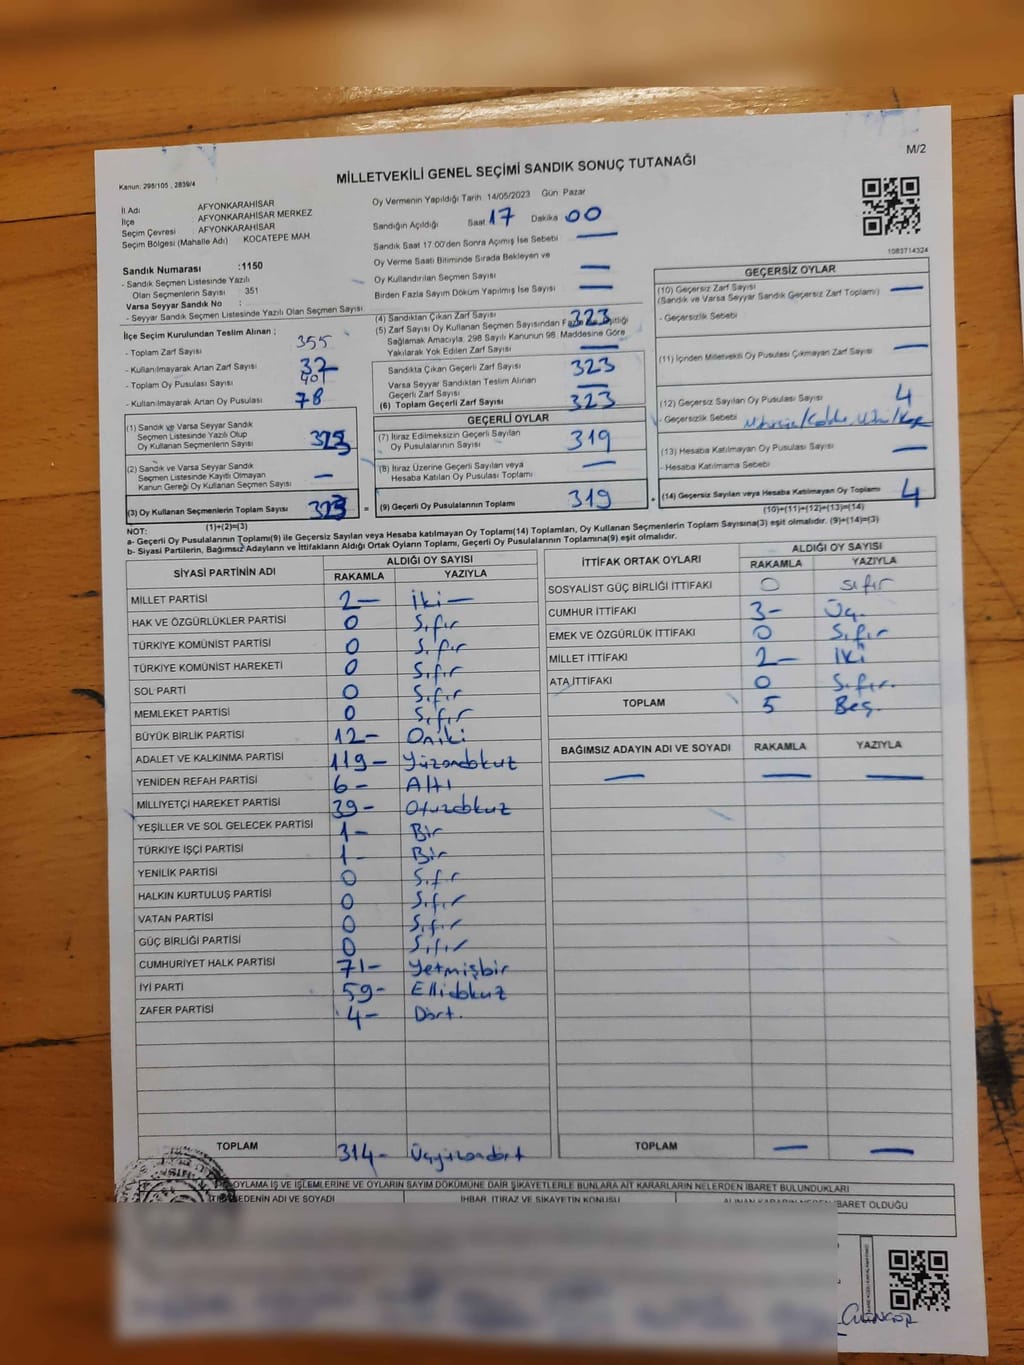 M/2
MİLLETVEKİLİ GENEL SEÇİMİ SANDIK SONUÇ TUTANAĞI
Kanun: 298/105 , 2839/4
İl Adı AFYONKARAHİSAR
İlçe AFYONKARAHİSAR MERKEZ
Seçim Çevresi : AFYONKARAHİSAR
Seçim Bölgesi (Mahalle Adı) KOCATEPE MAH.
Oy Vermenin Yapıldığı Tarih 14/05/2023 Gün Pazar
Sandığın Açıldığı Saat 17 Dakika 00
Sandık Saat 17:00'den Sonra Açımış İse Sebebi —
Oy Verme Saati Bitiminde Sırada Bekleyen ve
Oy Kullandırılan Seçmen Sayısı —
Birden Fazla Sayım Döküm Yapılmış İse Sayısı —
1083714324
Sandık Numarası :1150
- Sandık Seçmen Listesinde Yazılı
Olan Seçmenlerin Sayısı 351
Varsa Seyyar Sandık No :
- Seyyar Sandık Seçmen Listesinde Yazılı Olan Seçmen Sayısı
İlçe Seçim Kurulundan Teslim Alınan ;
- Toplam Zarf Sayısı 355
- Kullanılmayarak Artan Zarf Sayısı 32
- Toplam Oy Pusulası Sayısı 401
- Kullanılmayarak Artan Oy Pusulası 78
(1) Sandık ve Varsa Seyyar Sandık
Seçmen Listesinde Yazılı Olup
Oy Kullanan Seçmenlerin Sayısı 323
(2) Sandık ve Varsa Seyyar Sandık
Seçmen Listesinde Kayıtlı Olmayan
Kanun Gereği Oy Kullanan Seçmen Sayısı —
(3) Oy Kullanan Seçmenlerin Toplam Sayısı 323
(1)+(2)=(3)
(4) Sandıktan Çıkan Zarf Sayısı 323
(5) Zarf Sayısı Oy Kullanan Seçmen Sayısından Fazla İse Eşitliği
Sağlamak Amacıyla, 298 Sayılı Kanunun 98. Maddesine Göre
Yakılarak Yok Edilen Zarf Sayısı —
Sandıkta Çıkan Geçerli Zarf Sayısı 323
Varsa Seyyar Sandıktan Teslim Alınan
Geçerli Zarf Sayısı —
(6) Toplam Geçerli Zarf Sayısı 323
GEÇERLİ OYLAR
(7) İtiraz Edilmeksizin Geçerli Sayılan
Oy Pusulalarının Sayısı 319
(8) İtiraz Üzerine Geçerli Sayılan veya
Hesaba Katılan Oy Pusulası Toplamı —
= (9) Geçerli Oy Pusulalarının Toplamı 319 +
GEÇERSİZ OYLAR
(10) Geçersiz Zarf Sayısı —
(Sandık ve Varsa Seyyar Sandık Geçersiz Zarf Toplamı)
- Geçersizlik Sebebi
(11) İçinden Milletvekili Oy Pusulası Çıkmayan Zarf Sayısı —
(12) Geçersiz Sayılan Oy Pusulası Sayısı 4
- Geçersizlik Sebebi
(13) Hesaba Katılmayan Oy Pusulası Sayısı —
- Hesaba Katılmama Sebebi
(14) Geçersiz Sayılan veya Hesaba Katılmayan Oy Toplamı 4
(10)+(11)+(12)+(13)=(14)
NOT:
a- Geçerli Oy Pusulaların Toplamı(9) ile Geçersiz Sayılan veya Hesaba katılmayan Oy Toplamı(14) Toplamları, Oy Kullanan Seçmenlerin Toplam Sayısına(3) eşit olmalıdır. (9)+(14)=(3)
b- Siyasi Partilerin, Bağımsız Adayların ve İttifakların Aldığı Ortak Oyların Toplamı, Geçerli Oy Pusulalarının Toplamına(9) eşit olmalıdır.
SİYASİ PARTİNİN ADI ALDIĞI OY SAYISI
RAKAMLA YAZIYLA
MİLLET PARTİSİ 2— İki—
HAK VE ÖZGÜRLÜKLER PARTİSİ 0 Sıfır
TÜRKİYE KOMÜNİST PARTİSİ 0 Sıfır
TÜRKİYE KOMÜNİST HAREKETİ 0 Sıfır
SOL PARTİ 0 Sıfır
MEMLEKET PARTİSİ 0 Sıfır
BÜYÜK BİRLİK PARTİSİ 12— Oniki
ADALET VE KALKINMA PARTİSİ 119— Yüzondokuz
YENİDEN REFAH PARTİSİ 6— Altı
MİLLİYETÇİ HAREKET PARTİSİ 39— Otuzdokuz
YEŞİLLER VE SOL GELECEK PARTİSİ 1— Bir
TÜRKİYE İŞÇİ PARTİSİ 1— Bir
YENİLİK PARTİSİ 0 Sıfır
HALKIN KURTULUŞ PARTİSİ 0 Sıfır
VATAN PARTİSİ 0 Sıfır
GÜÇ BİRLİĞİ PARTİSİ 0 Sıfır
CUMHURİYET HALK PARTİSİ 71— Yetmişbir
İYİ PARTİ 59— Ellidokuz
ZAFER PARTİSİ 4— Dört.
TOPLAM 314— Üçyüzondört
İTTİFAK ORTAK OYLARI ALDIĞI OY SAYISI
RAKAMLA YAZIYLA
SOSYALİST GÜÇ BİRLİĞİ İTTİFAKI 0 sıfır
CUMHUR İTTİFAKI 3— Üç.
EMEK VE ÖZGÜRLÜK İTTİFAKI 0 Sıfır
MİLLET İTTİFAKI 2— İki
ATA İTTİFAKI 0 Sıfır.
TOPLAM 5 Beş.
BAĞIMSIZ ADAYIN ADI VE SOYADI RAKAMLA YAZIYLA
— — —
TOPLAM — —
OYLAMA İŞ VE İŞLEMLERİNE VE OYLARIN SAYIM DÖKÜMÜNE DAİR ŞİKAYETLERLE BUNLARA AİT KARARLARIN NELERDEN İBARET BULUNDUKLARI
EDENİN ADI VE SOYADI İHBAR, İTİRAZ VE ŞİKAYETİN KONUSU ALINAN KARARIN NEDEN İBARET OLDUĞU